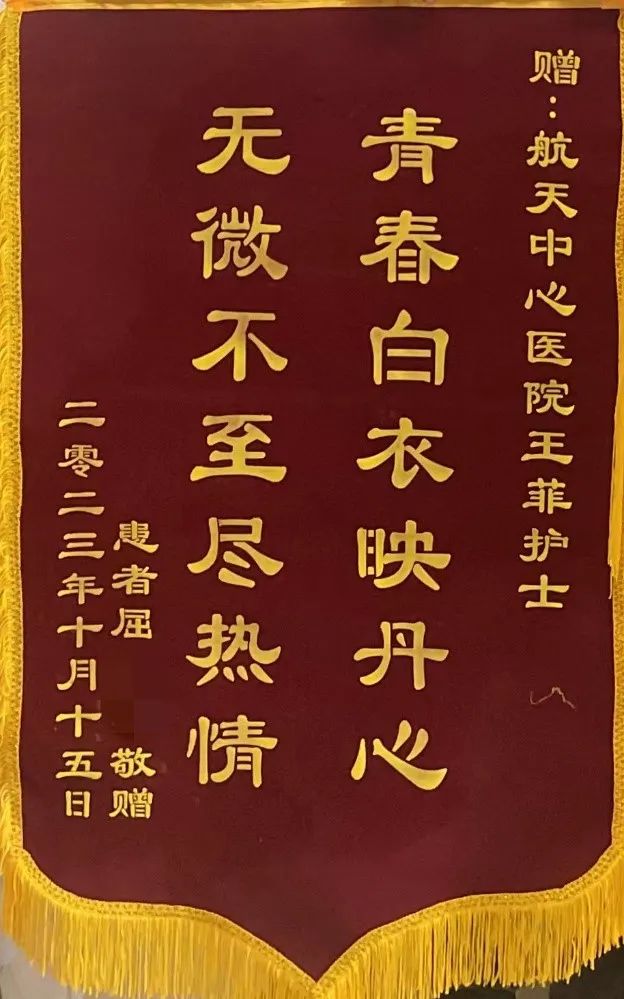 赠：航天中心医院王菲护士
青春白衣映丹心
无微不至尽热情
患者屈 敬赠
二零二三年十月十五日